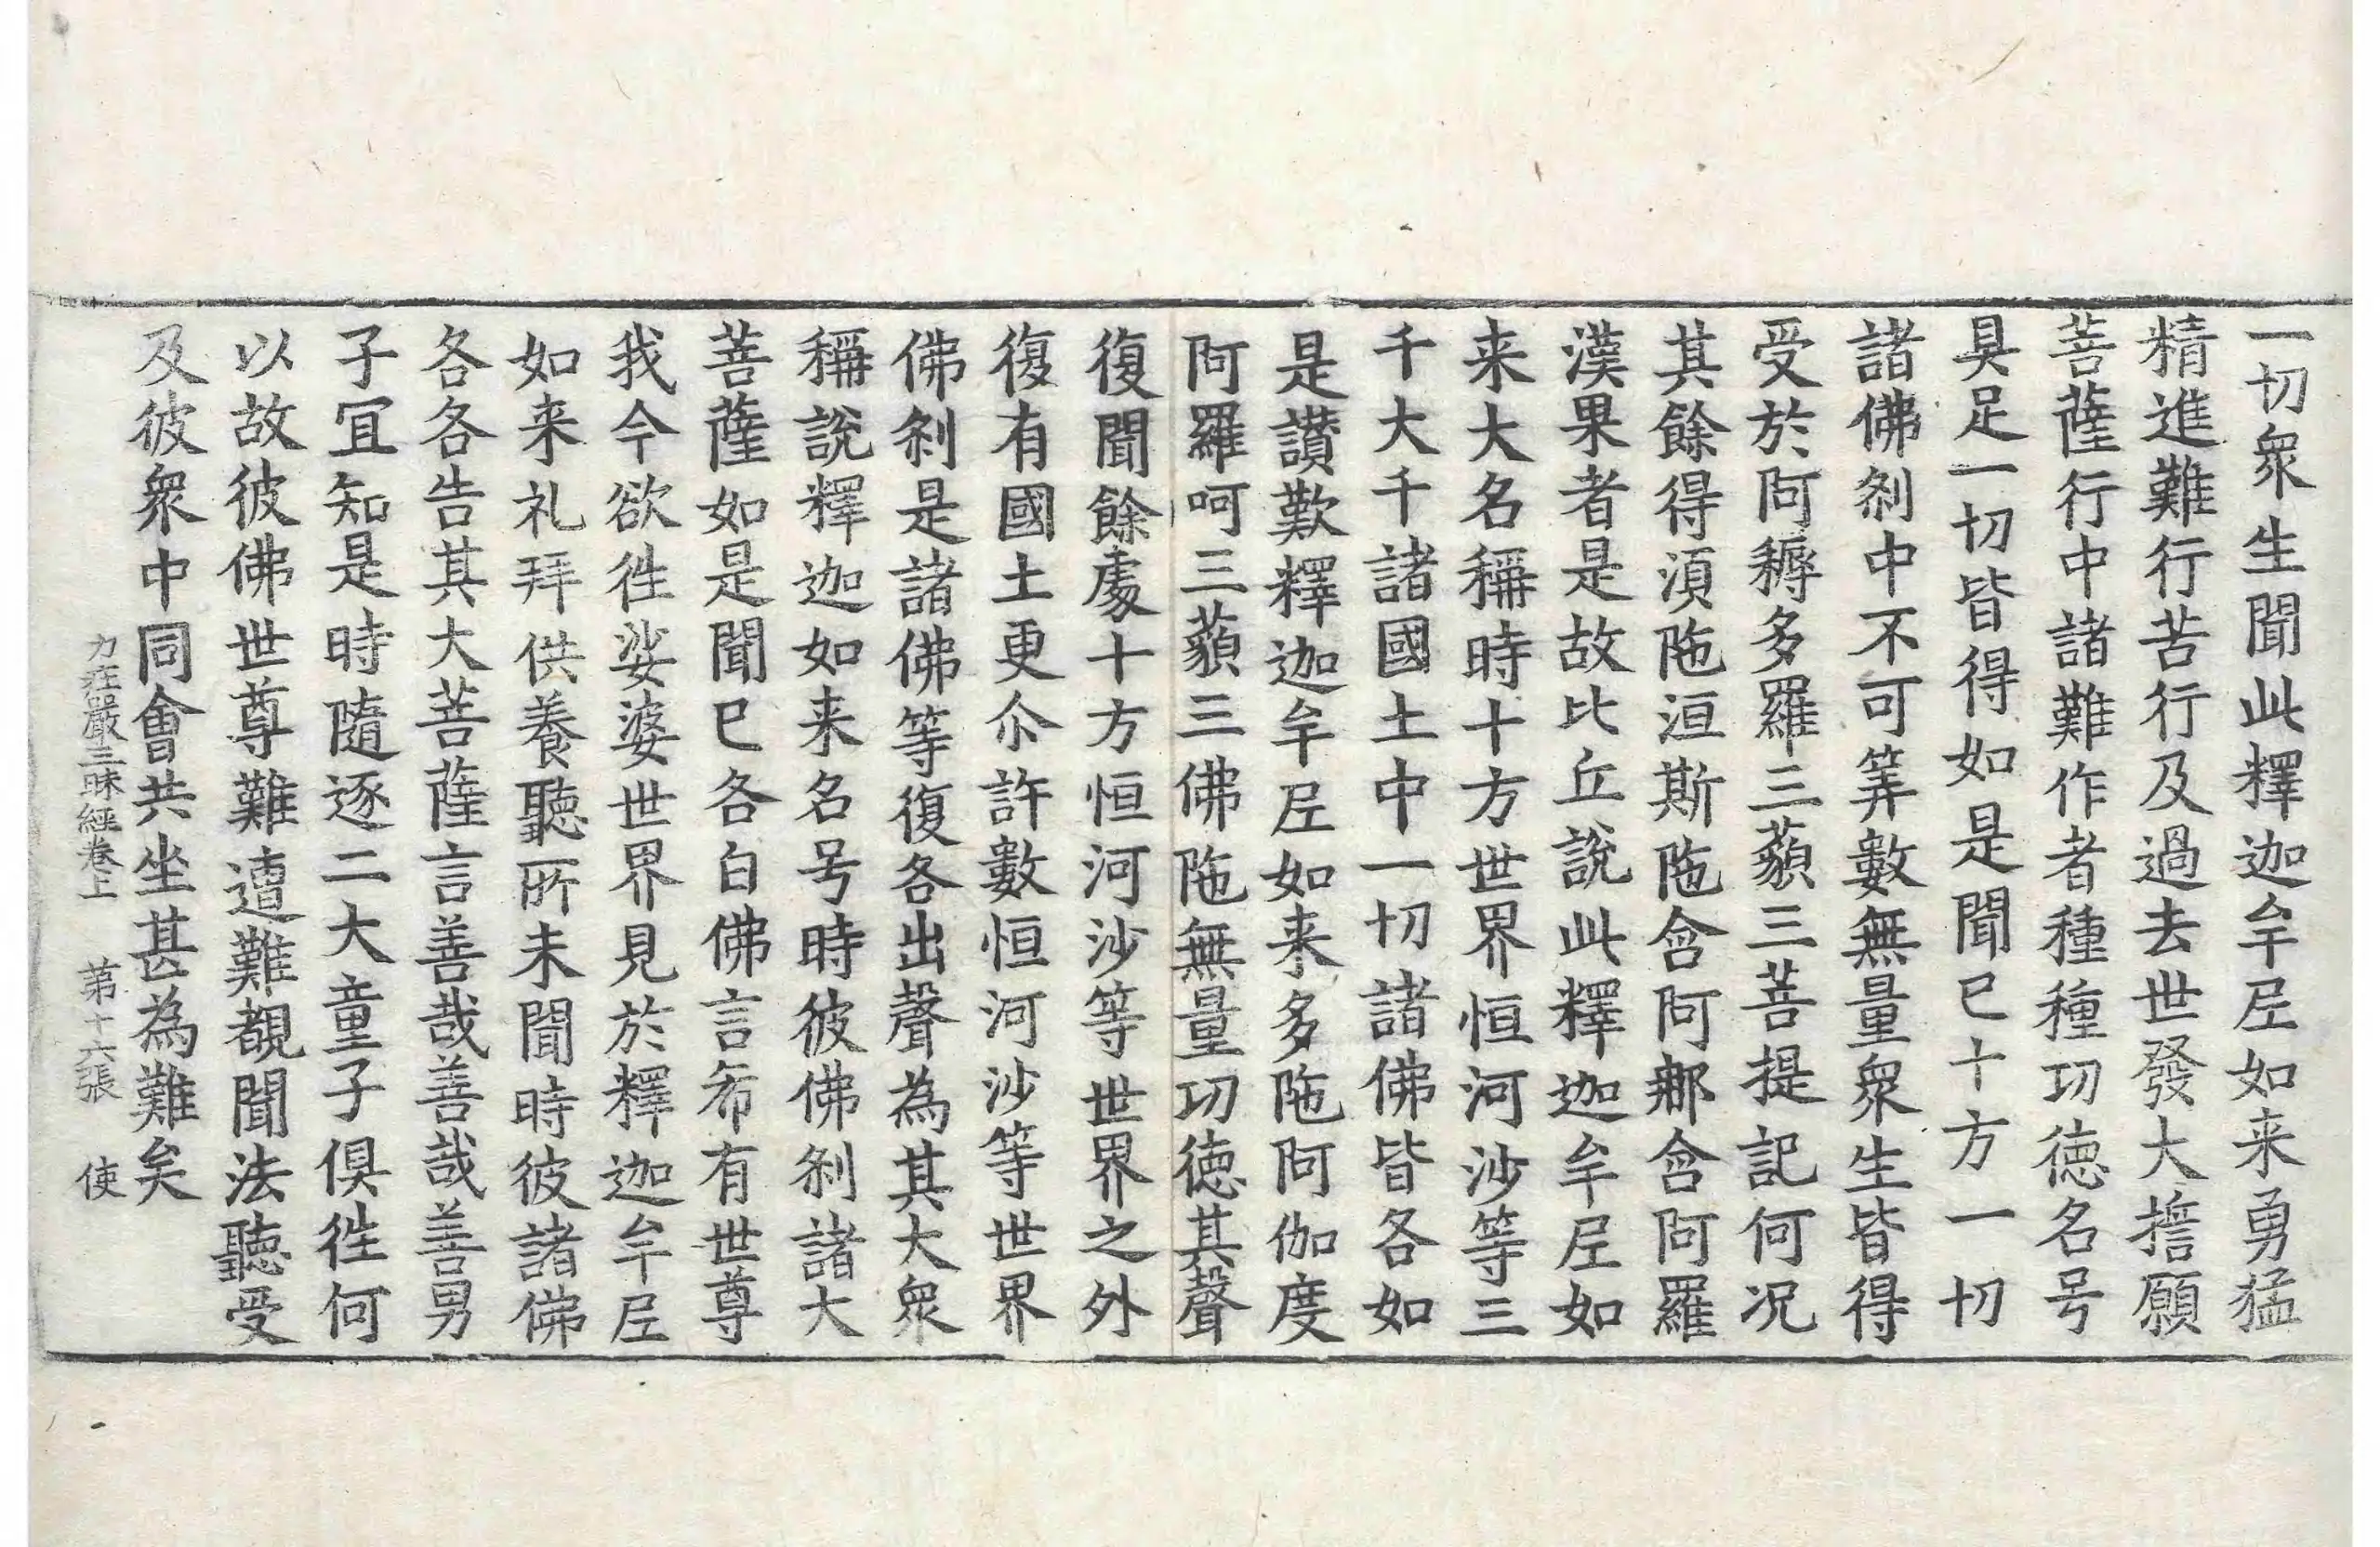 一切衆生聞此釋迦牟尼如来勇猛
精進難行苦行及過去世發大擔願
菩薩行中諸難作者種種功徳名号
具足一切皆得如是聞已十方一切
諸佛刹中不可筭數無量衆生皆得
受於阿耨多羅三藐三菩提記何况
其餘得湏陁洹斯陁含阿那含阿羅
漢果者是故比丘說此釋迦牟尼如
来大名稱時十方世界恒河沙等三
千大千諸國土中一切諸佛皆各如
是讃歎釋迦牟尼如来多陁阿伽度
阿羅呵三藐三佛陁無量功徳其聲
復聞餘處十方恒河沙等世界之外
復有國土更尒許數恒河沙等世界
佛刹是諸佛等復各出聲為其大衆
稱說釋迦如来名号時彼佛刹諸大
菩薩如是聞已各白佛言希有世尊
我今欲往娑婆世界見於釋迦牟尼
如来礼拜供養聽所未聞時彼諸佛
各各告其大菩薩言善哉善哉善男
子冝知是時隨逐二大童子俱往何
以故彼佛世尊難遭難覩聞法聽受
及彼衆中同會共坐甚為難矣
力莊嚴三昧經卷上 第十六張 使